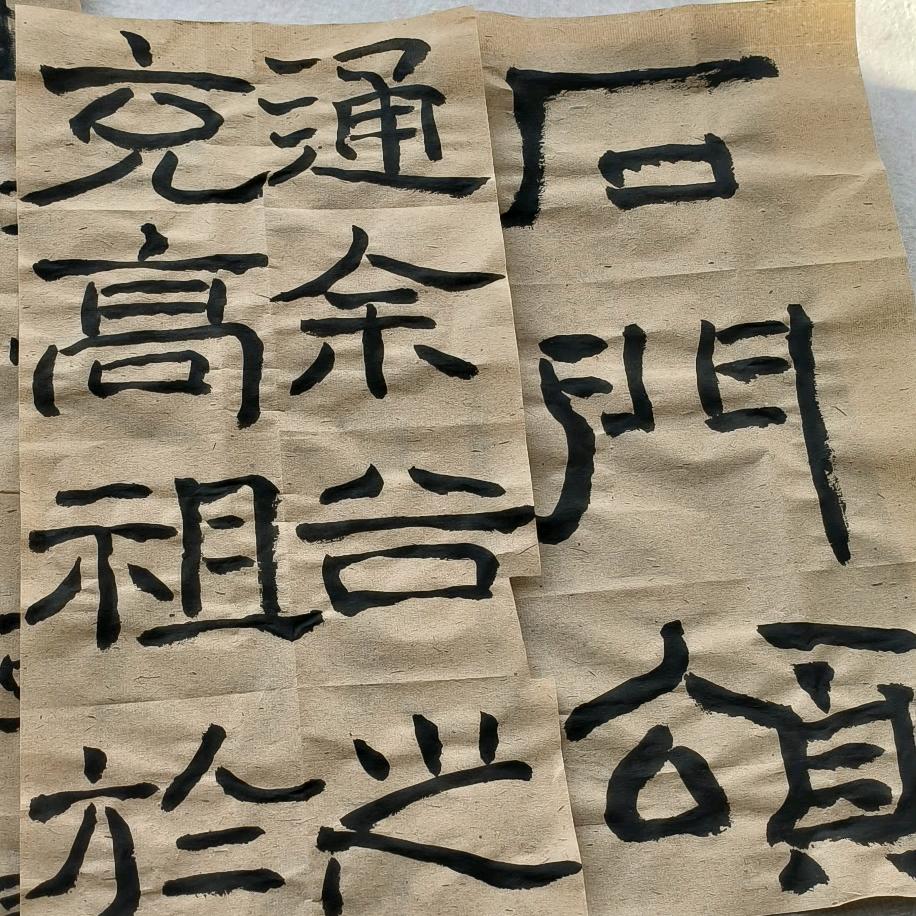 石門頌
通余谷之
充高祖於